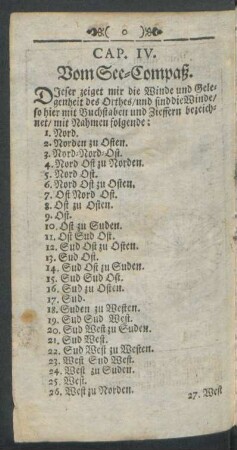 ( o )
CAP. IV.
Vom See-Compaß.
DIeser zeiget mir die Winde und Gele-
genheit des Orthes/und sind die Winde/
so hier mit Buchstaben und Zieffern bezeich-
net/ mit Nahmen folgende:
1. Nord.
2. Norden zu Osten.
3. Nord-Nord-Ost.
4. Nord Ost zu Norden.
5. Nord Ost.
6. Nord Ost zu Osten.
7. Ost Nord Ost.
8. Ost zu Osten.
9. Ost.
10. Ost zu Suden.
11. Ost Sud Ost.
12. Sud Ost zu Osten.
13. Sud Ost.
14. Sud Ost zu Suden.
15. Sud Sud Ost.
16. Sud zu Osten.
17. Sud.
18. Suden zu Westen.
19. Sud Sud West.
20. Sud West zu Suden.
21. Sud West.
22. Sud West zu Westen.
23. West Sud West.
24. West zu Suden.
25. West.
26. West zu Norden.
27. West